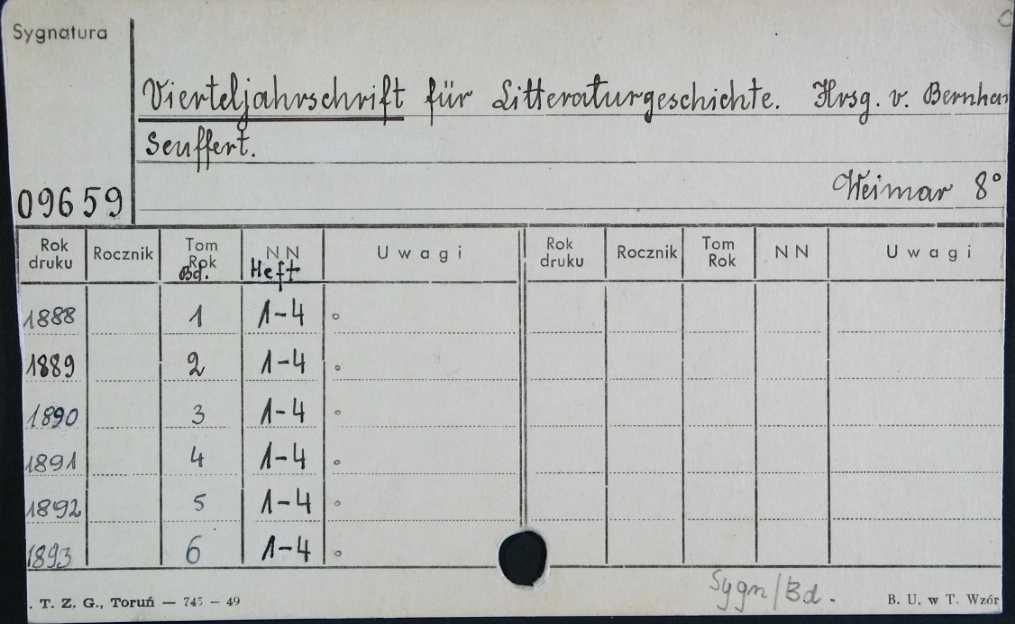 Sygnatura
Vierteljahrschrift für Litteraturgeschichte. Hrsg. v. Bernhar
Seuffert.
Weimar 8°
09659
Rok druku Rocznik Tom Rok Bd. NN Heft Uwagi Rok druku Rocznik Tom Rok NN Uwagi
1888 1 1-4 °
1889 2 1-4 °
1890 3 1-4 °
1891 4 1-4 °
1892 5 1-4 °
1893 6 1-4 °
Sygn/Bd.
. T. Z. G., Toruń — 745 — 49 B. U. w T. Wzór